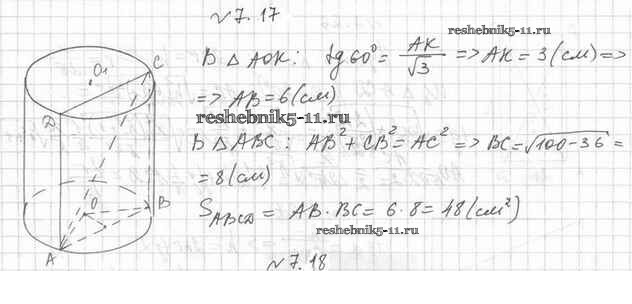 №7.17
reshebnik5-11.ru
В △ AOK: tg 60° = AK/√3 => AK = 3 (см) =>
=> AB = 6 (см)
reshebnik5-11.ru
В △ ABC: AB² + CB² = AC² => BC = √100-36 =
= 8 (см)
S ABCD = AB · BC = 6 · 8 = 48 (см²)
reshebnik5-11.ru
№7.18
O₁
C
D
O
B
A